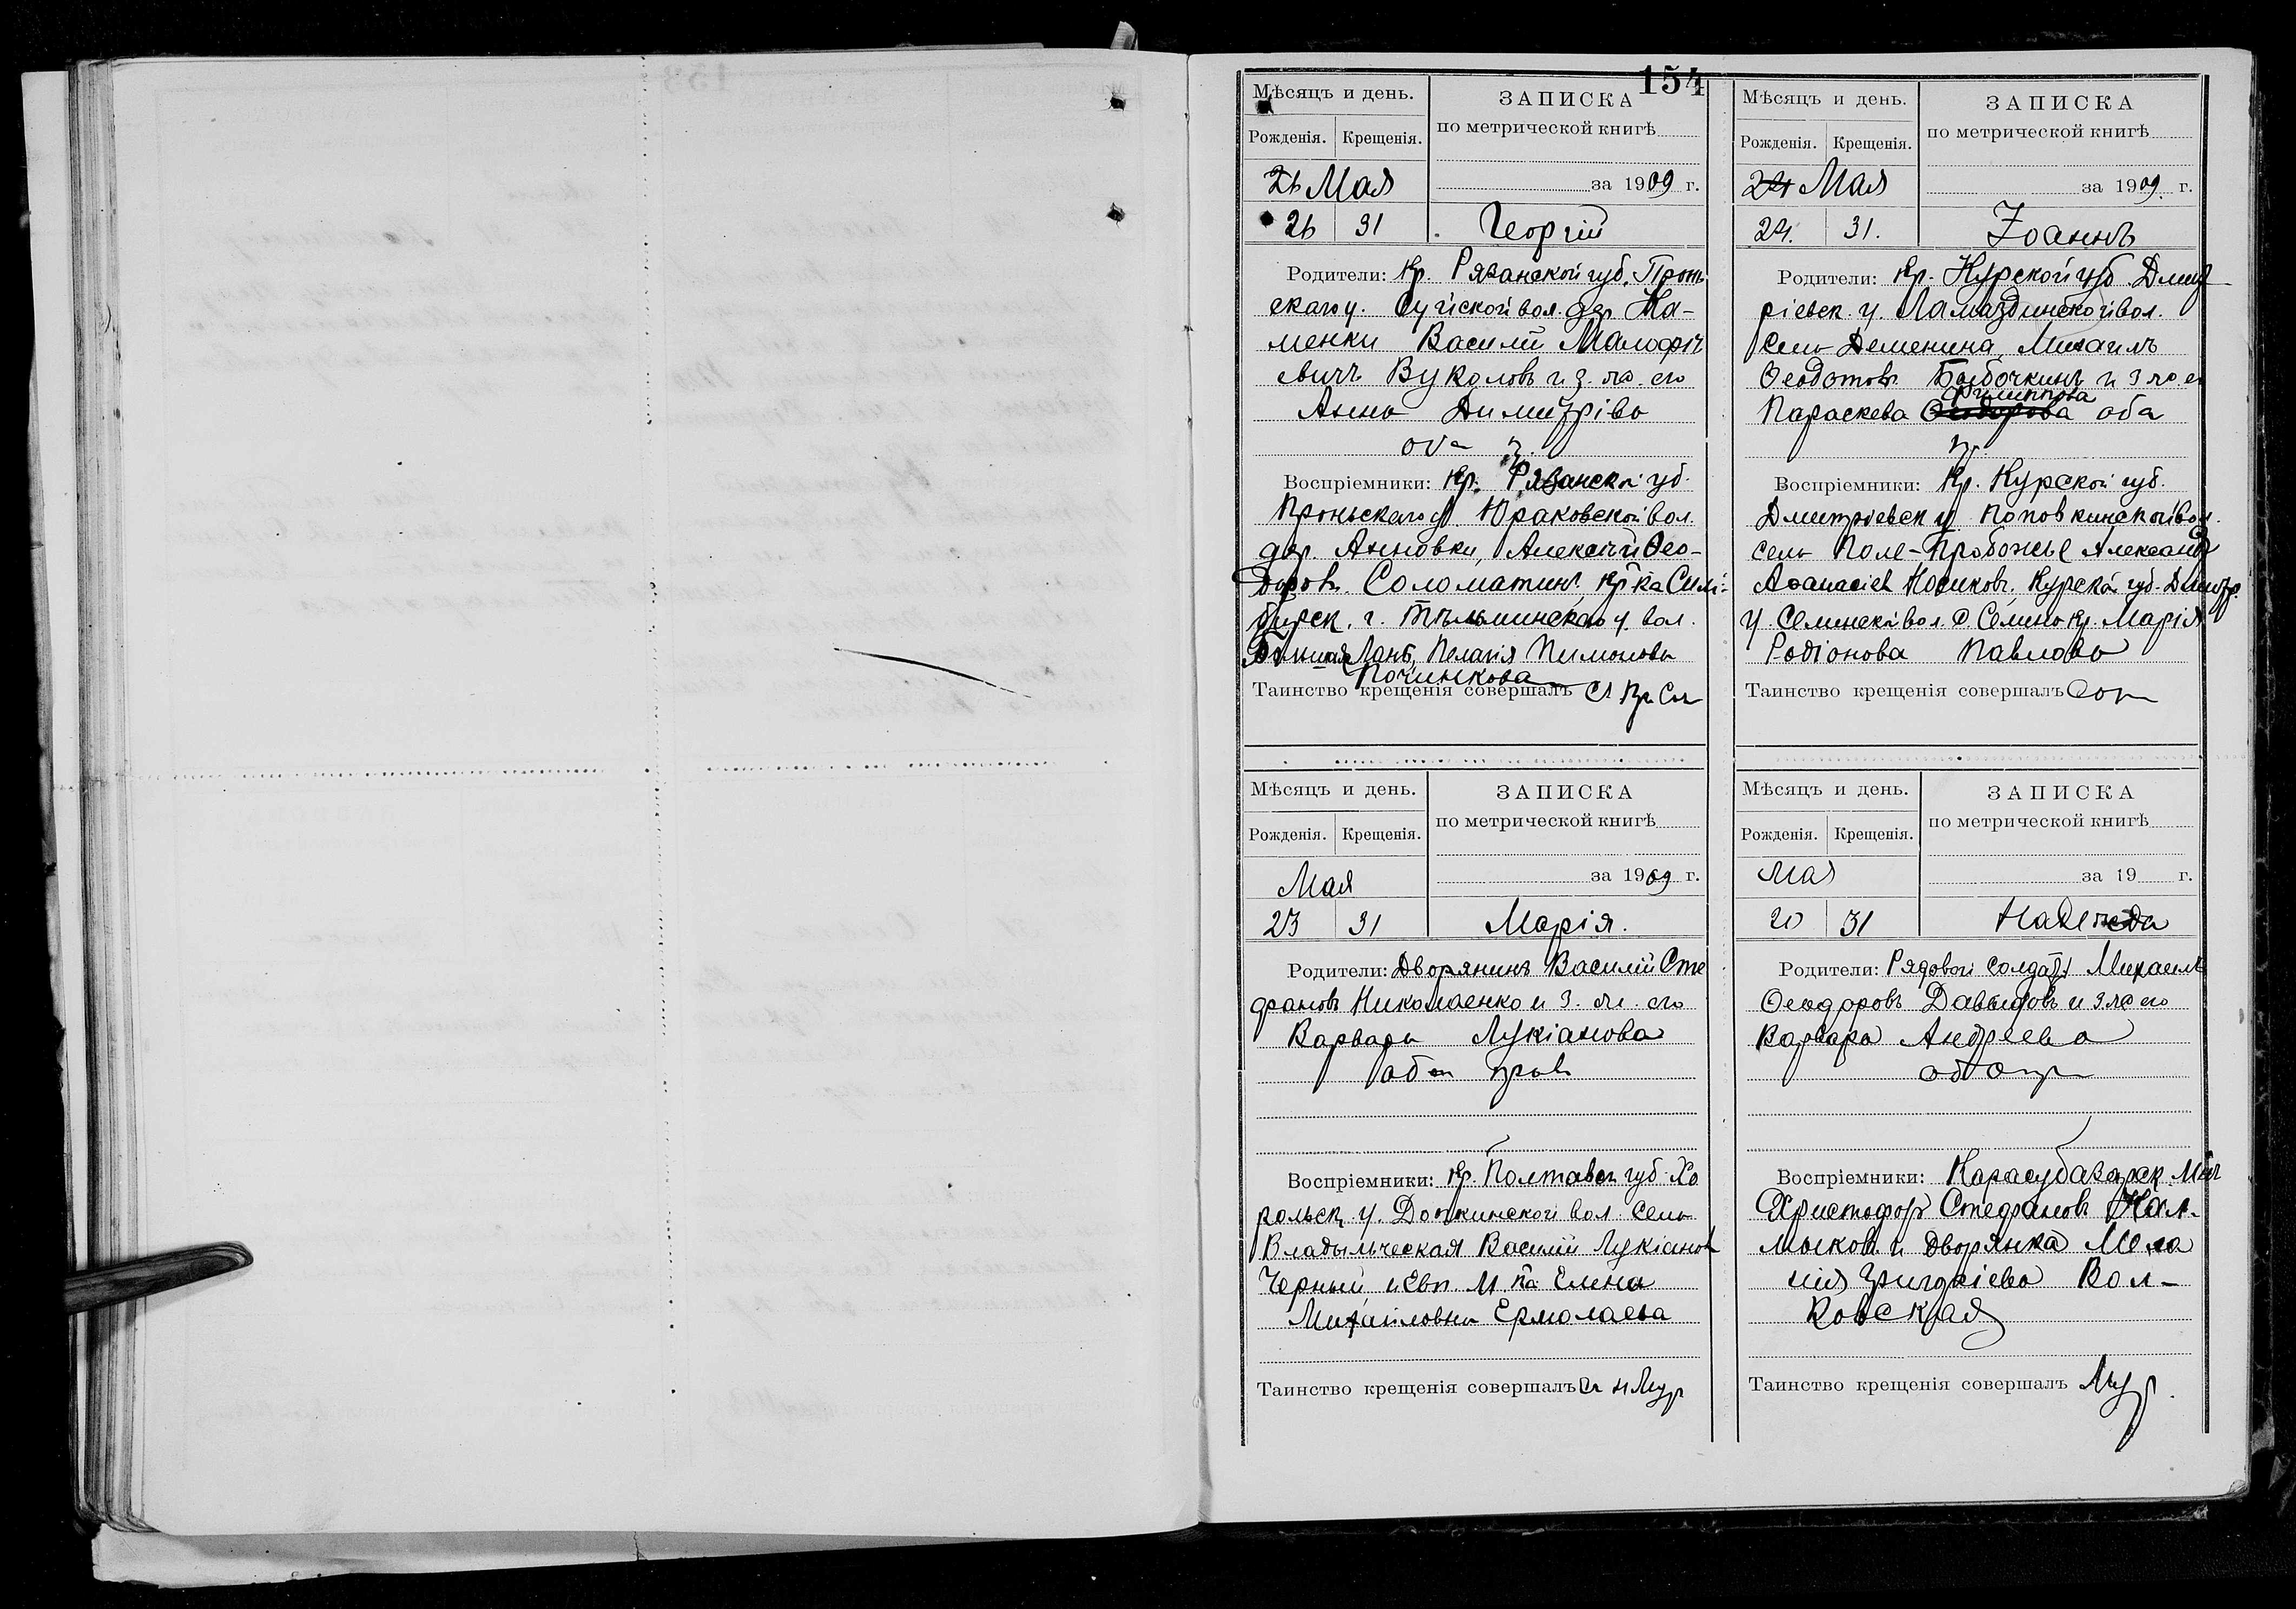 154
Мѣсяцъ и день.
ЗАПИСКА
Рожденія. Крещенія.
по метрической книгѣ
Мая
за 1909 г.
26 31 Георгій
Родители: Кр. Рязанской губ. Прон
скаго у. вол. дер. Ка-
менки Василій
евичъ Вуколовъ и з. жа. его
Анна Димитріва
оба
Воспріемники: Кр. Рязанской губ.
Проньскаго у. Юраковской вол.
дер. Анновки, Алексій Ѳео-
доров. Соломатинъ, кр-ка Сим-
бирск. г. у. вол.
Пелагія Пимонова
Починкова
Таинство крещенія совершалъ
Мѣсяцъ и день.
ЗАПИСКА
Рожденія. Крещенія.
по метрической книгѣ
Мая
за 1909 г.
24. 31. Іоаннъ
Родители: Кр. Курской губ Дмит
ріевск. у. вол.
село Деменина, Михаилъ
Ѳеодотовъ и з жа ег
Параскева Филиппова оба
пр
Воспріемники: Кр. Курской губ.
Дмитріевск у Поповкинской вол.
село Поле-Пробожье Александр
Аѳанасіев Носиковъ, Курской губ. Дмитр.
у. Семинской вол. с. Семино кр. Марія
Родіонова Павлова
Таинство крещенія совершалъ
Мѣсяцъ и день.
ЗАПИСКА
Рожденія. Крещенія.
по метрической книгѣ
Мая
за 1909 г.
23 31 Марія.
Родители: Дворянинъ Василій Сте
фановъ Николаенко и з. ж. его
Варвара Лукіанова
оба прав
Воспріемники: Кр. Полтавск губ Хо
рольск у. вол. село
Владыческая Василій Лукіанов
Черный, и Евп. М. ка Елена
Михаиловна Ермолаева
Таинство крещенія совершалъ
Мѣсяцъ и день.
ЗАПИСКА
Рожденія. Крещенія.
по метрической книгѣ
Мая
за 19 г.
20 31 Надежда
Родители: Рядовой солдатъ Михаилъ
Ѳеодоровъ Давыдовъ и з жа его
Варвара Андреева
оба пр
Воспріемники: Карасубазарск. Мѣщ
Христофор Стефанов Кал-
мыков и Дворянка Мела
нія Григоріева Вол-
ковская
Таинство крещенія совершалъ